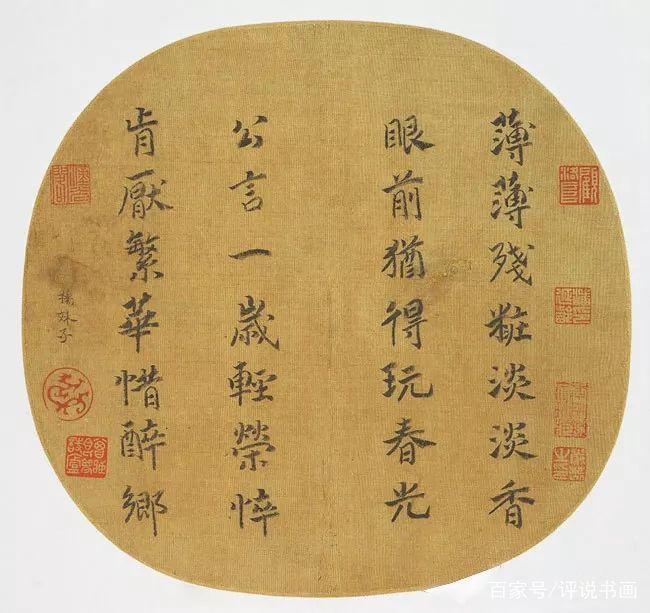 薄薄殘粧淡淡香
眼前猶得玩春光
公言一歲輕榮悴
肯厭繁華惜醉鄉
楊妹子
百家号/评说书画